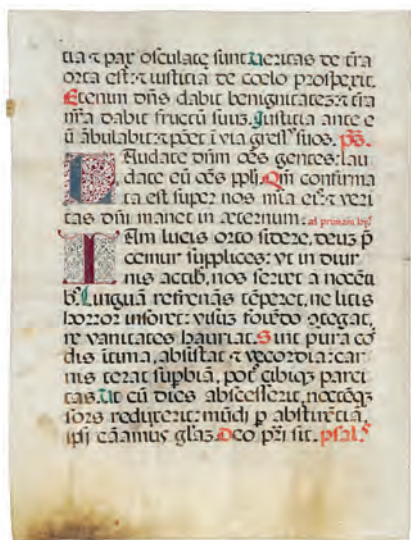 tia ⁊ pax osculate sunt. Ueritas de tr̃a
orta est: ⁊ iustitia de coelo prosperit.
Etenim dñs dabit benignitatez: ⁊ tr̃a
nr̃a dabit fructũ suũ. Justitia ante e
ũ ãbulabit: ⁊ põet ĩ via gress' suos. ps.
Laudate dñm oẽs gentes: lau
date eũ oẽs ppli. Qm̃ confirma
ta est super nos mĩa ei': ⁊ veri
tas dñi manet in æternum: ad primam
Iam lucis orto sidere, deus p̃
cemur supplices: vt in diur
nis actib', nos servet a nocẽti
b'. Linguã refrenãs tẽperet, ne litis
horror insonet: visuz fovẽdo ↄtegat,
ne vanitates hauriat. Sint pura cõ
dis ĩtima, absistat ⁊ vecordia: car
nis terat supbiã, pot' cibiqz parci
tas. Ut cũ dies abscesserit, noctẽqz
sors reduxerit: mũdi p abstinẽtiã,
ipsi cãamus gl̃az. Deo pr̃i sit. psal.